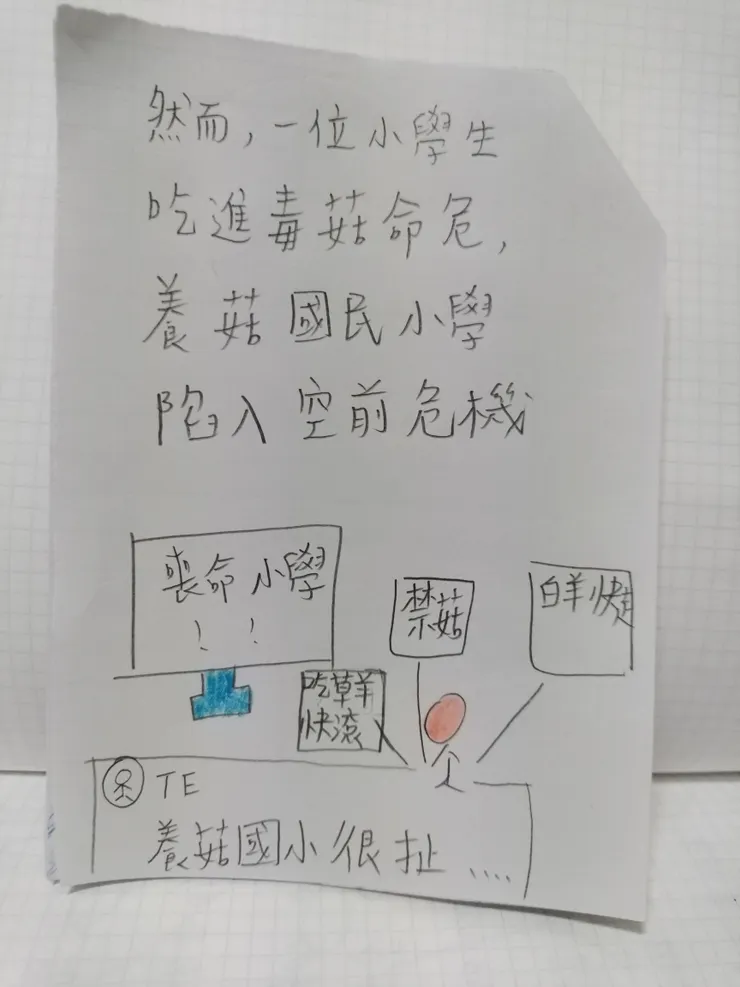 然而，一位小學生
吃進毒菇命危，
養菇國民小學
陷入空前危機
喪命小學
！！
禁菇
白羊快
吃草羊
快滾
TE
養菇國小很扯....